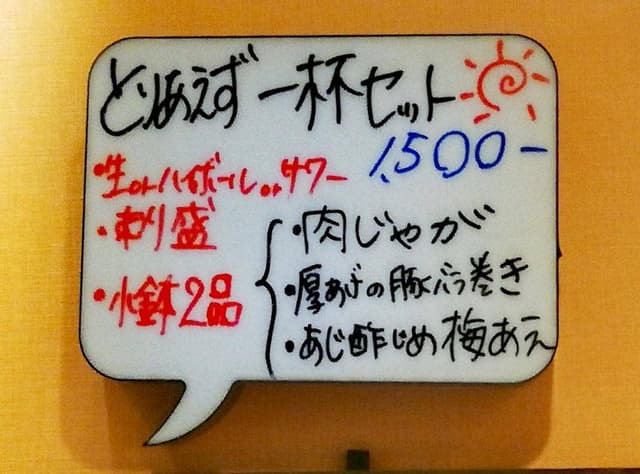 とりあえず一杯セット
1,500-
・生orハイボールorサワー
・刺り盛
・小鉢2品
・肉じゃが
・厚あげの豚バラ巻き
・あじ酢じめ梅あえ